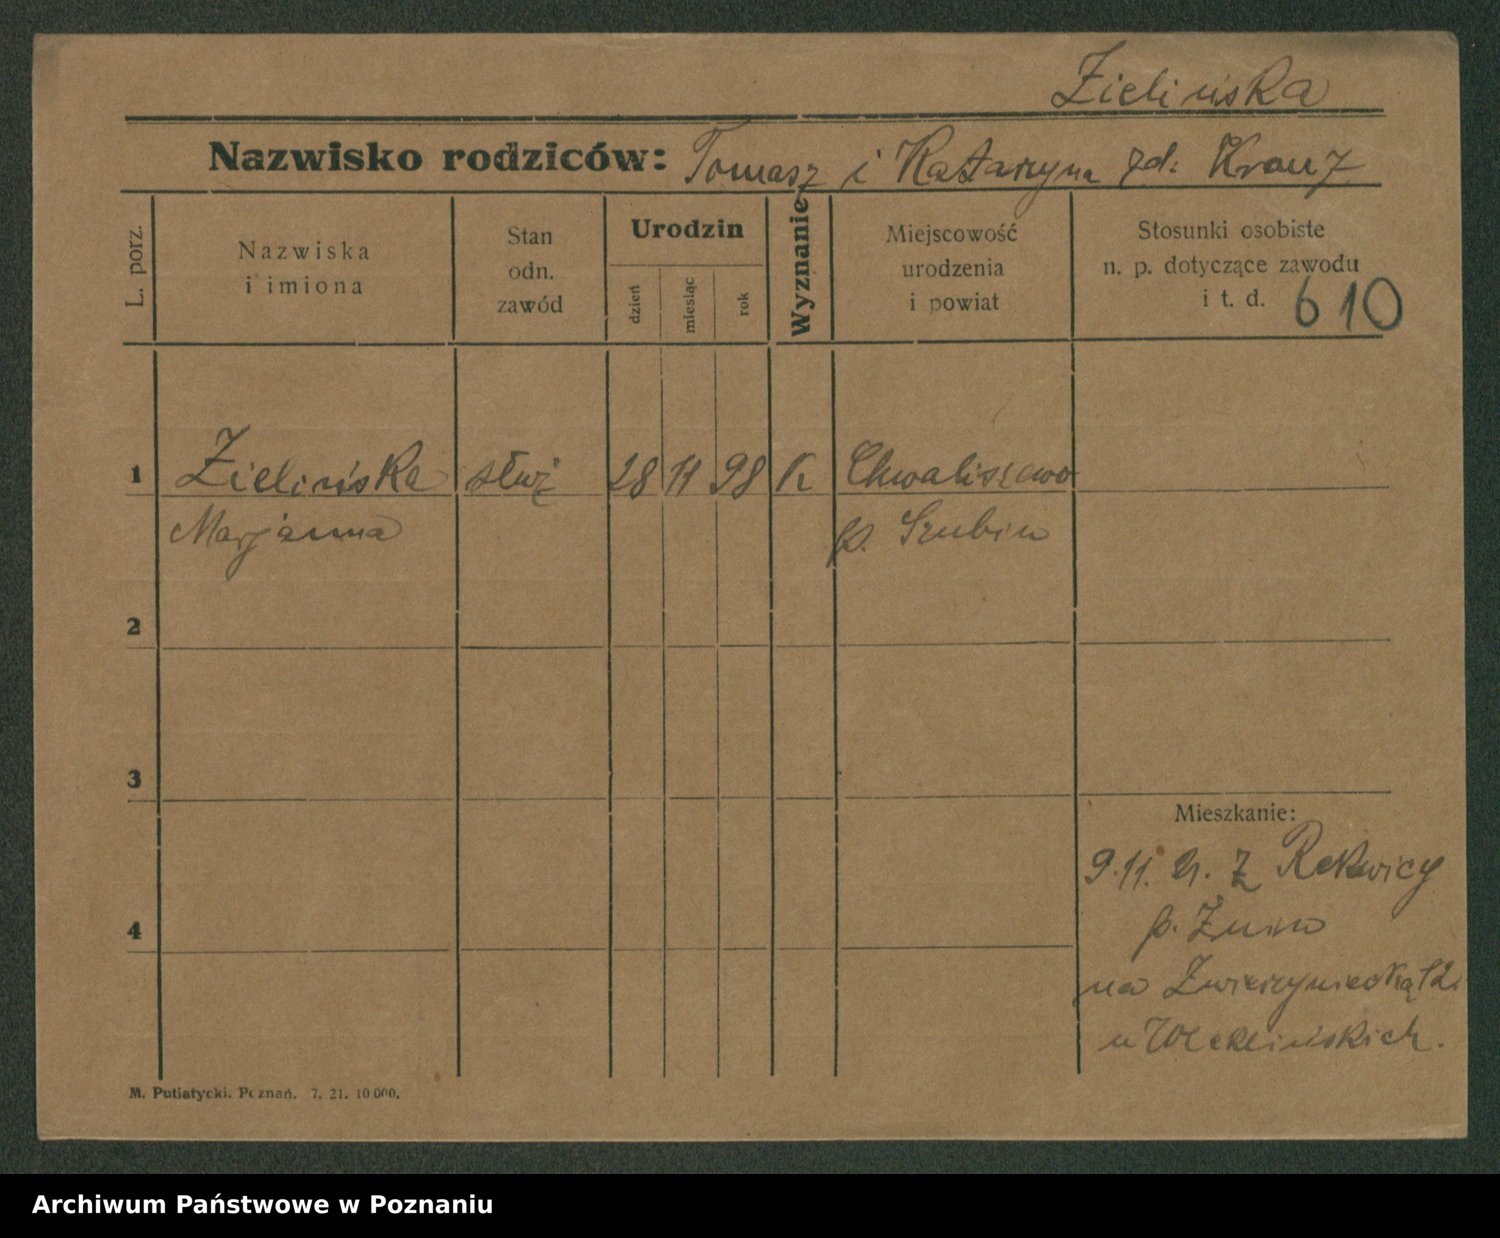 Zielińska
Nazwisko rodziców: Tomasz i Katarzyna zd: Krauz
L. porz.
Nazwiska
i imiona
Stan
odn.
zawód
Urodzin
dzień
miesiąc
rok
Wyznanie
Miejscowość
urodzenia
i powiat
Stosunki osobiste
n. p. dotyczące zawodu
i t. d. 610
1 Zielińska służ 28 11 98 K Chwaliszewo
Marjanna p. Szubin
2
3
Mieszkanie:
9.11. 21. z
p. Żnin
4
na Zwierzyniecką 12.
u
M. Putiatycki. Poznań. 7. 21. 10 000.
Archiwum Państwowe w Poznaniu